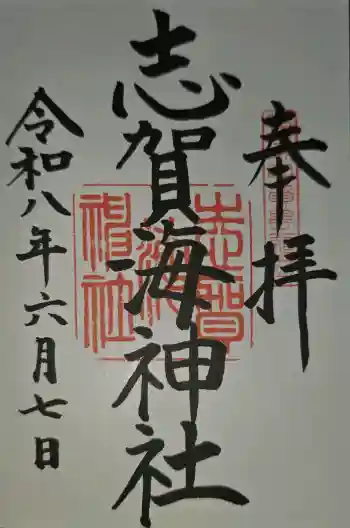 奉拝
志賀海神社
志賀海神社
令和八年六月七日